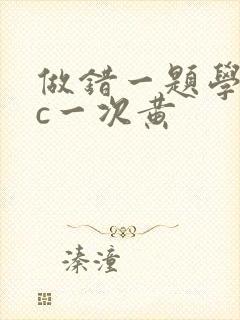 做錯一題學
c一次黃
溱潼